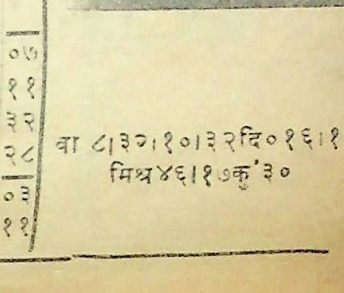 ०७
११
३२
२८
०३
११
वा ८।३०।१०।३२दि०१६।१
मिश्र४६।१७कुं३०